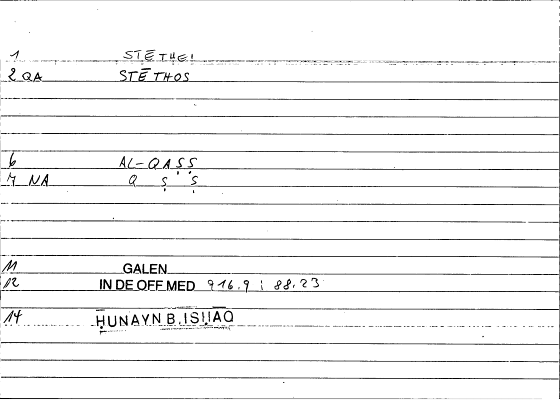 1 STĒTHEI
2 QA STĒTHOS
6 AL-QAṢṢ
7 NA Q Ṣ Ṣ
11 GALEN
12 IN DE OFF.MED 916.9 : 88.23
14 ḤUNAYN B. ISḤĀQ